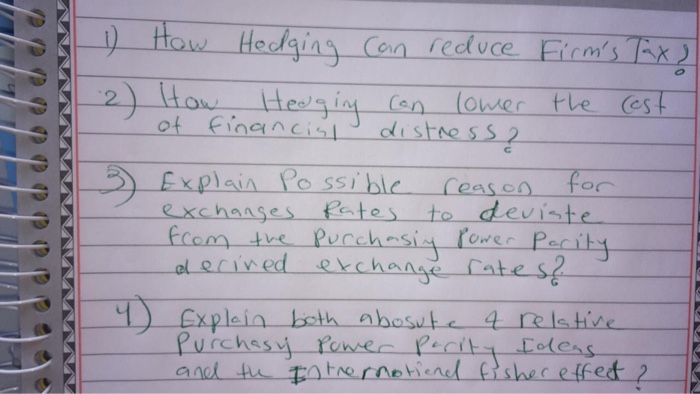 1) How Hedging Can reduce Firm's Tax?
2) How Hedging Can lower the Cost
of financial distress?
3) Explain Possible reason for
exchanges Rates to deviate
from the Purchasig Power Parity
derived exchange rates?
4) Explain both abosute & relative
Purchasy Power Parity Ideas
and the Internotiend fisher effect?